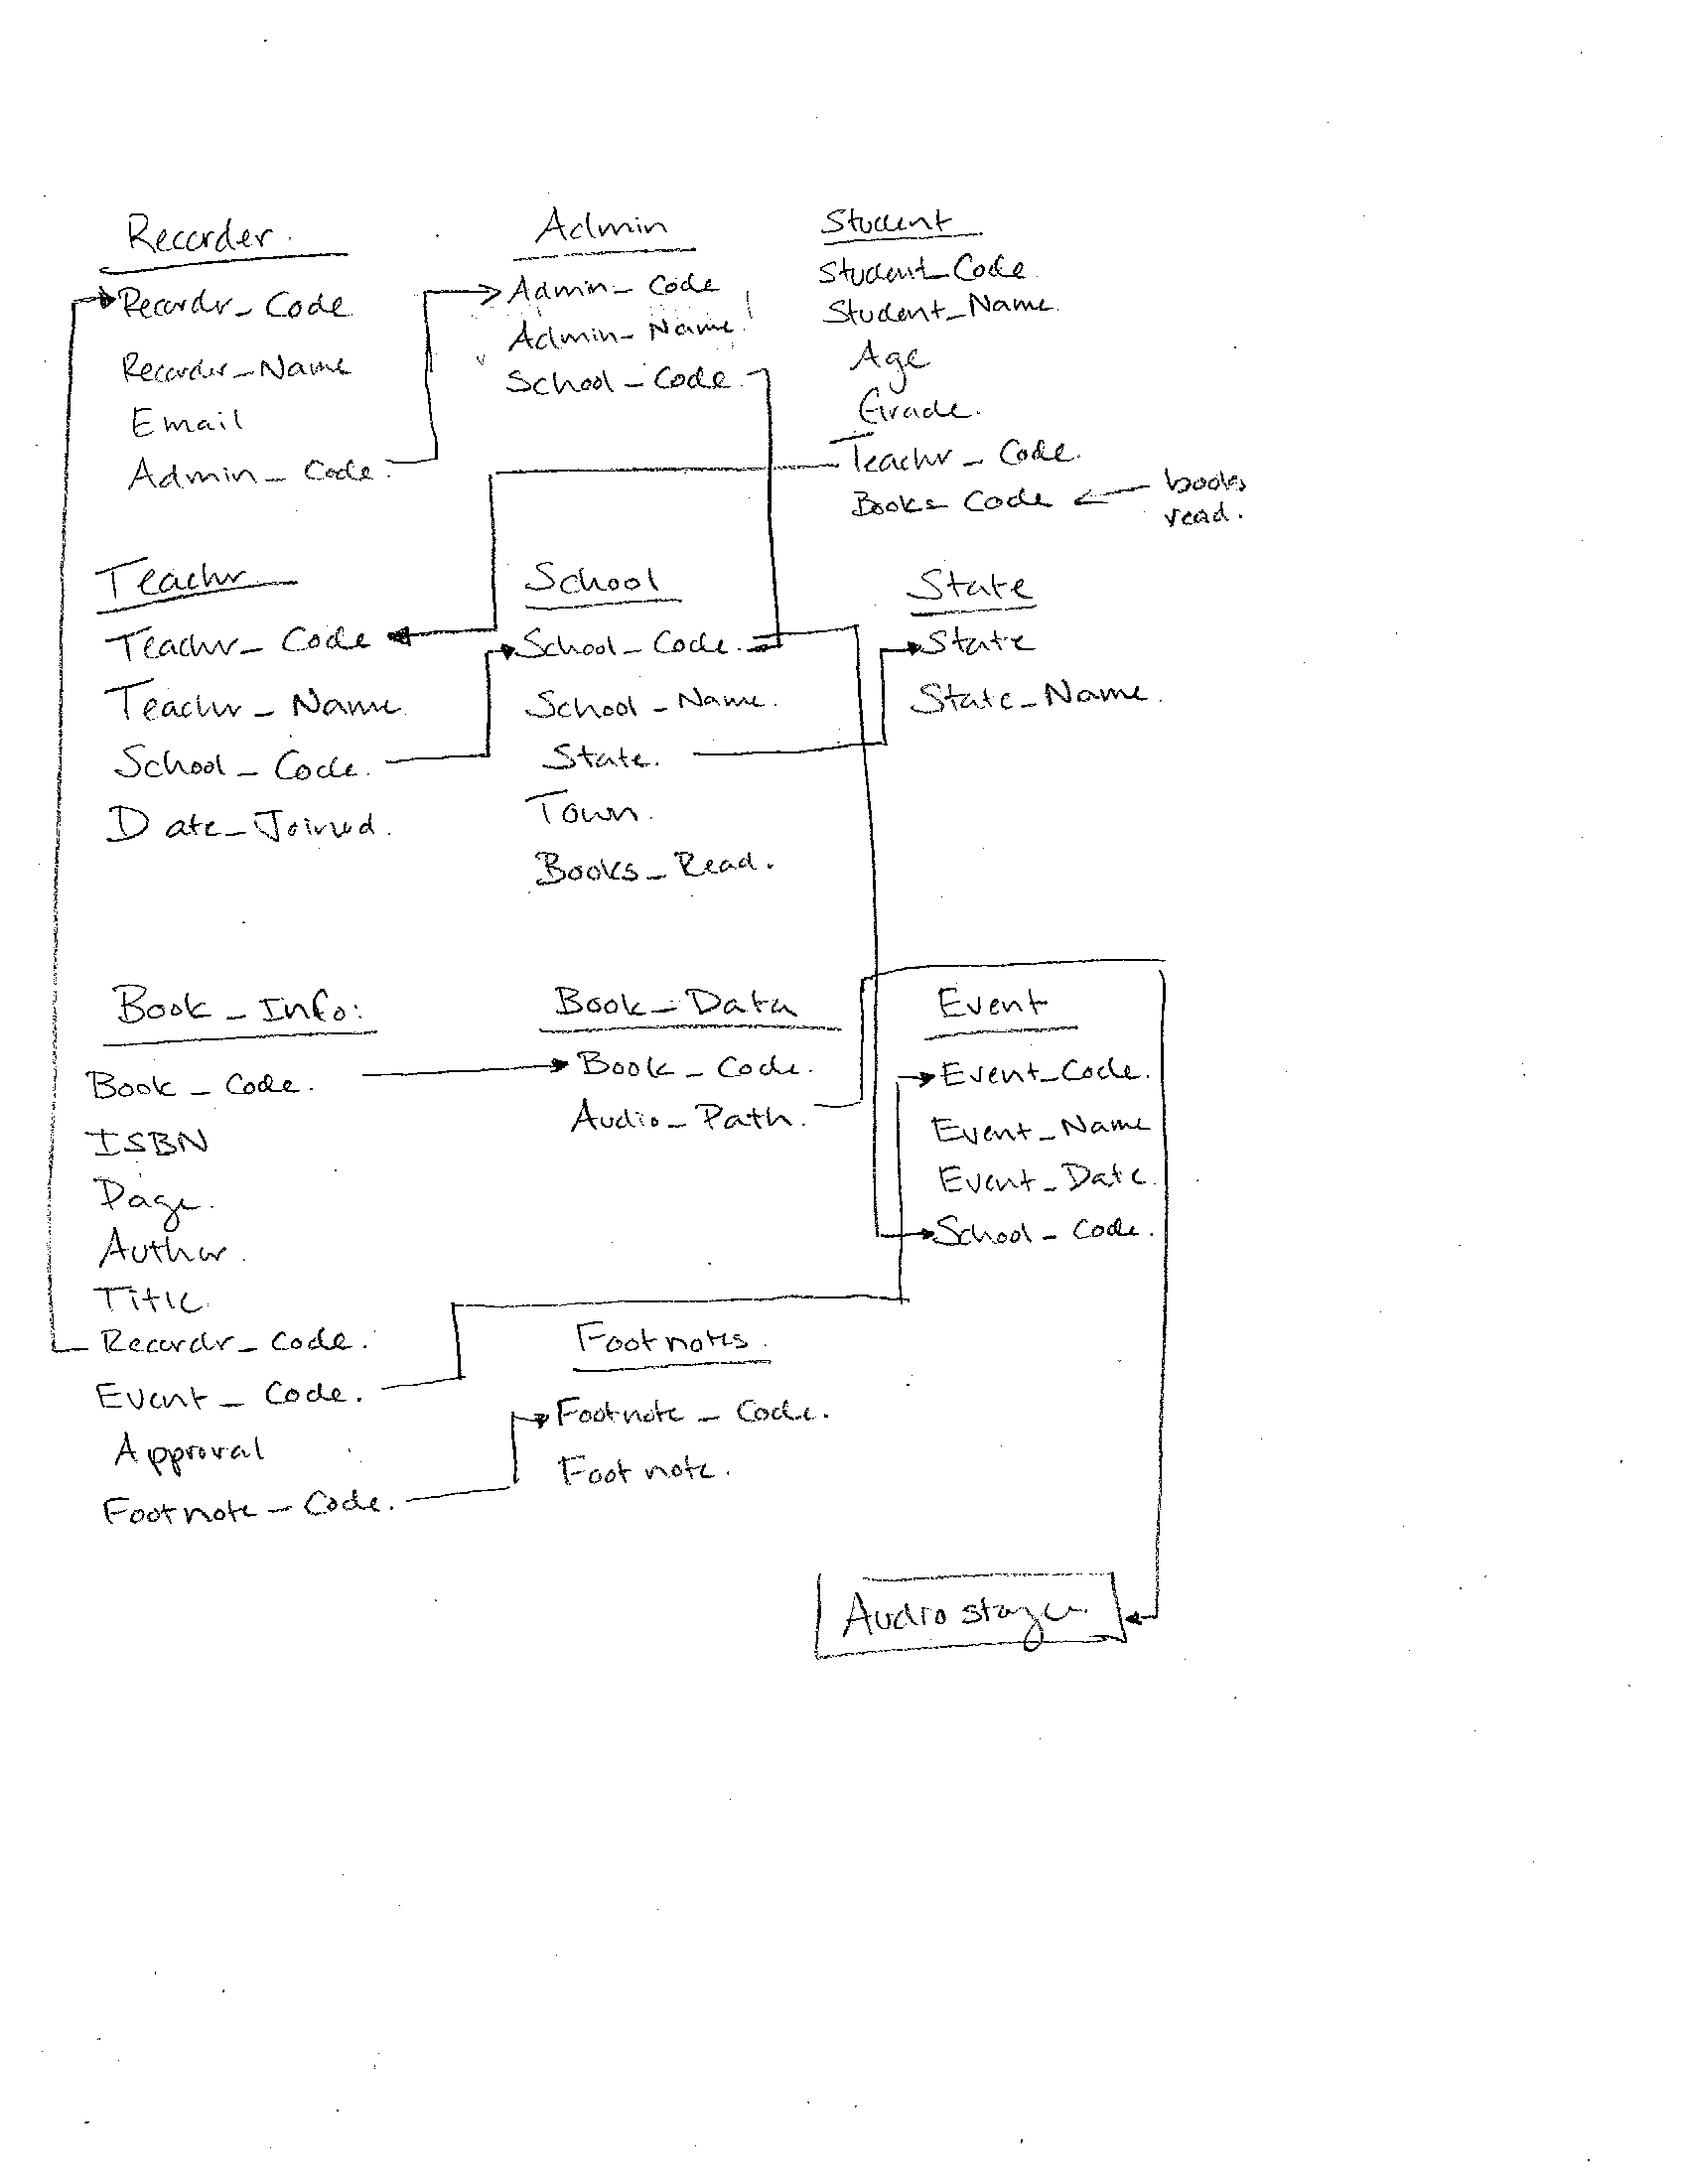 Recorder.
Recorder_Code
Recorder_Name
Email
Admin_Code.
Admin
Admin_Code
Admin_Name
School_Code
Student
Student_Code
Student_Name.
Age
Grade.
Teacher_Code.
Books_Code
books
read.
Teacher
Teacher_Code
Teacher_Name
School_Code.
Date_Joined.
School
School_Code.
School_Name.
State.
Town.
Books_Read.
State
State
State_Name.
Book_Info:
Book_Code.
ISBN
Page.
Author.
Title.
Recorder_Code.
Event_Code.
Approval
Footnote_Code.
Book_Data
Book_Code.
Audio_Path.
Event
Event_Code.
Event_Name
Event_Date.
School_Code.
Footnotes.
Footnote_Code.
Footnote.
Audio